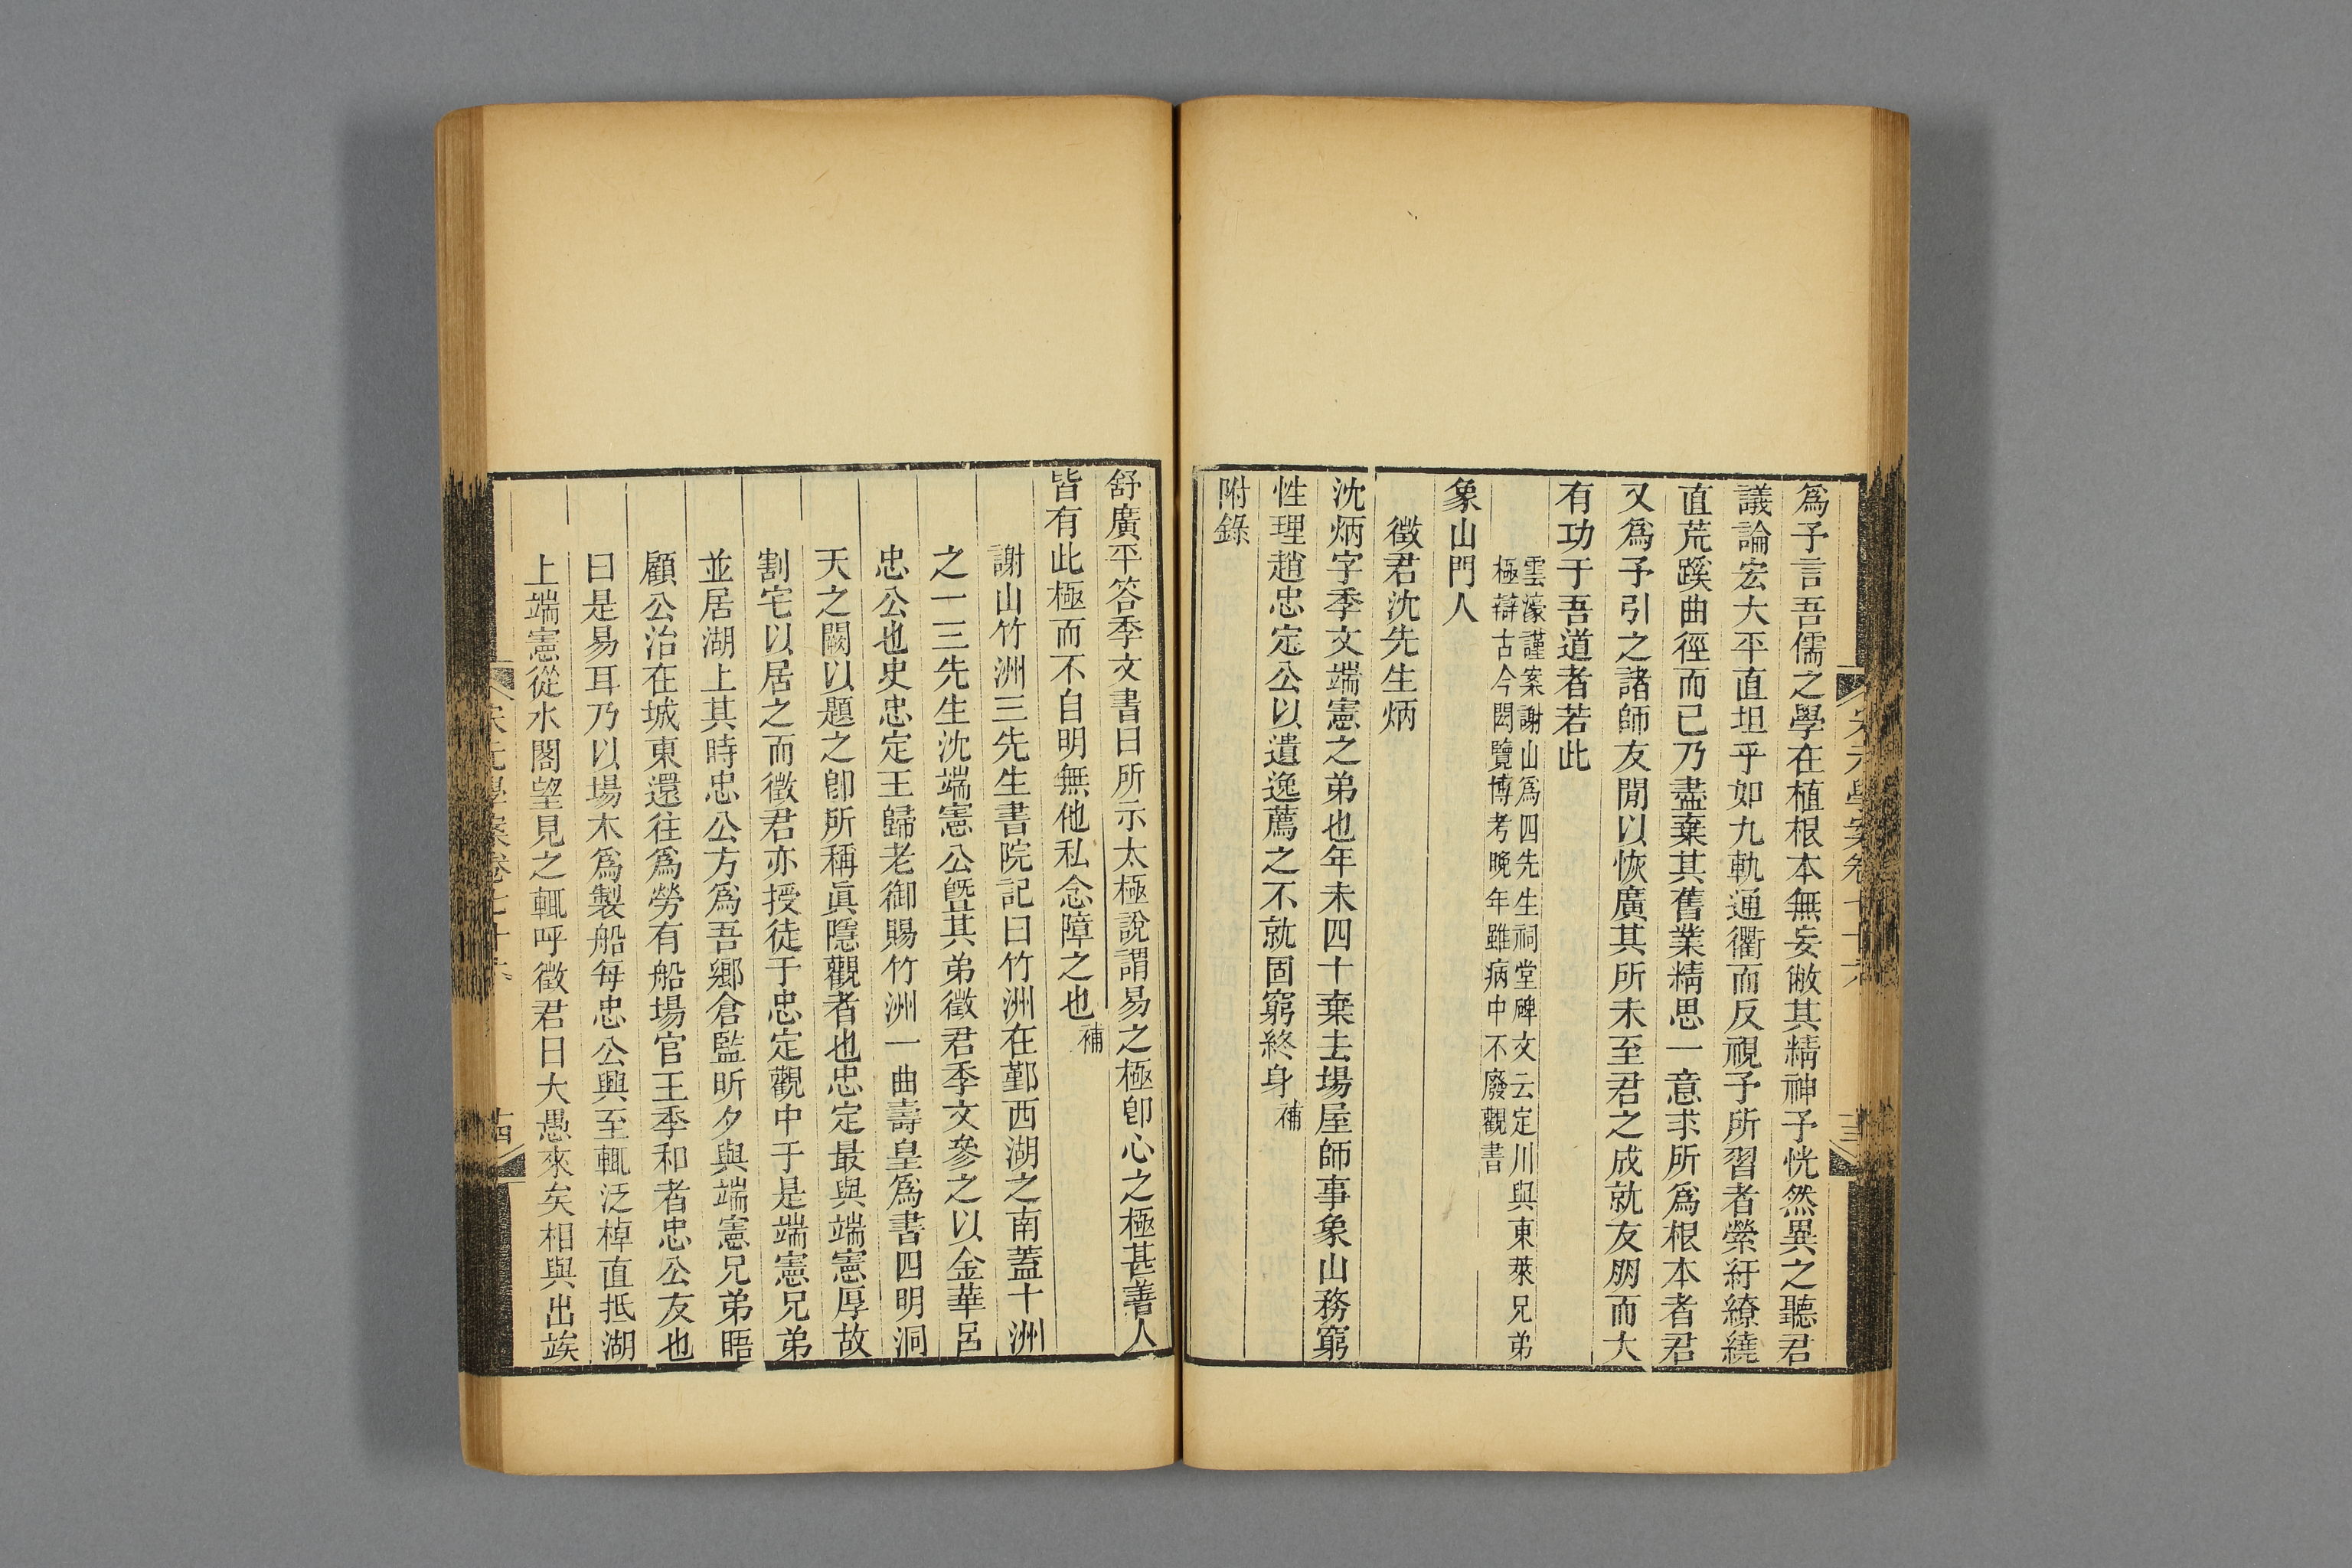 爲予言吾儒之學在植根本無妄敝其精神予恍然異之聽君
議論宏大平直坦乎如九軌通衢而反視予所習者縈紆繚繞
直荒蹊曲徑而已乃盡棄其舊業精思一意求所爲根本者君
又爲予引之諸師友閒以恢廣其所未至君之成就友朋而大
有功于吾道者若此
雲濠謹案謝山爲四先生祠堂碑文云定川與東萊兄弟
極辯古今閎覽博考晚年雖病中不廢觀書
象山門人
徵君沈先生炳
沈炳字季文端憲之弟也年未四十棄去場屋師事象山務窮
性理趙忠定公以遺逸薦之不就固窮終身補
附錄
舒廣平答季文書曰所示太極說謂易之極卽心之極甚善人
皆有此極而不自明無他私念障之也補
謝山竹洲三先生書院記曰竹洲在鄞西湖之南蓋十洲
之一三先生沈端憲公曁其弟徵君季文參之以金華呂
忠公也史忠定王歸老御賜竹洲一曲壽皇爲書四明洞
天之闕以題之卽所稱眞隱觀者也忠定最與端憲厚故
割宅以居之而徵君亦授徒于忠定觀中于是端憲兄弟
並居湖上其時忠公方爲吾鄉倉監昕夕與端憲兄弟晤
顧公治在城東還往爲勞有船場官王季和者忠公友也
曰是易耳乃以場木爲製船每忠公興至輒泛棹直抵湖
上端憲從水閣望見之輒呼徵君曰大愚來矣相與出竢
宋元學案卷七十六
十四